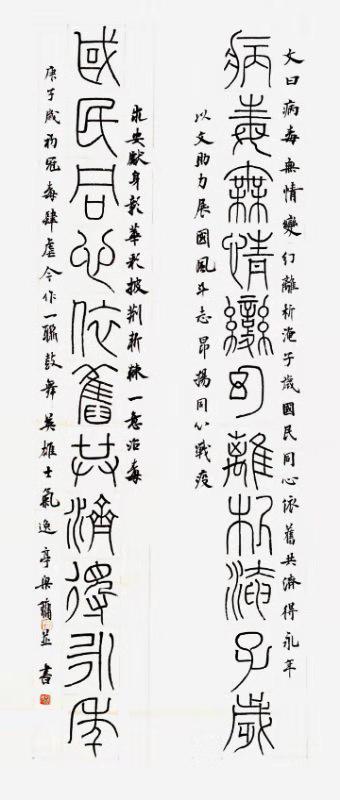 文曰病毒無情變幻離析淹子歲國民同心依舊共濟得永年
病毒無情變幻離析淹子歲
以文助力展國風斗志昂揚同心戰疫
獻身彰華彩披荆斬棘一意治毒
國民同心依舊共濟得永年
庚子歲初冠毒肆虐今作一聯鼓舞英雄士氣逸亭梁並書